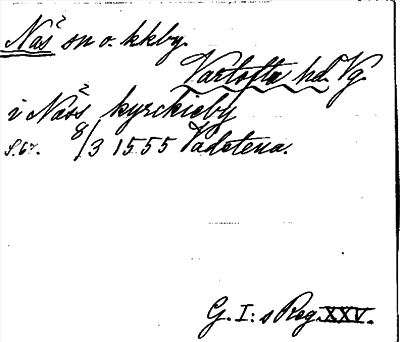 Näs² sn o. kkby.
Vartofta hd. Vg
i Näss² kyrckieby
S.67. 8/3 1555 Vadstena.
G. I: s Reg. XXV.